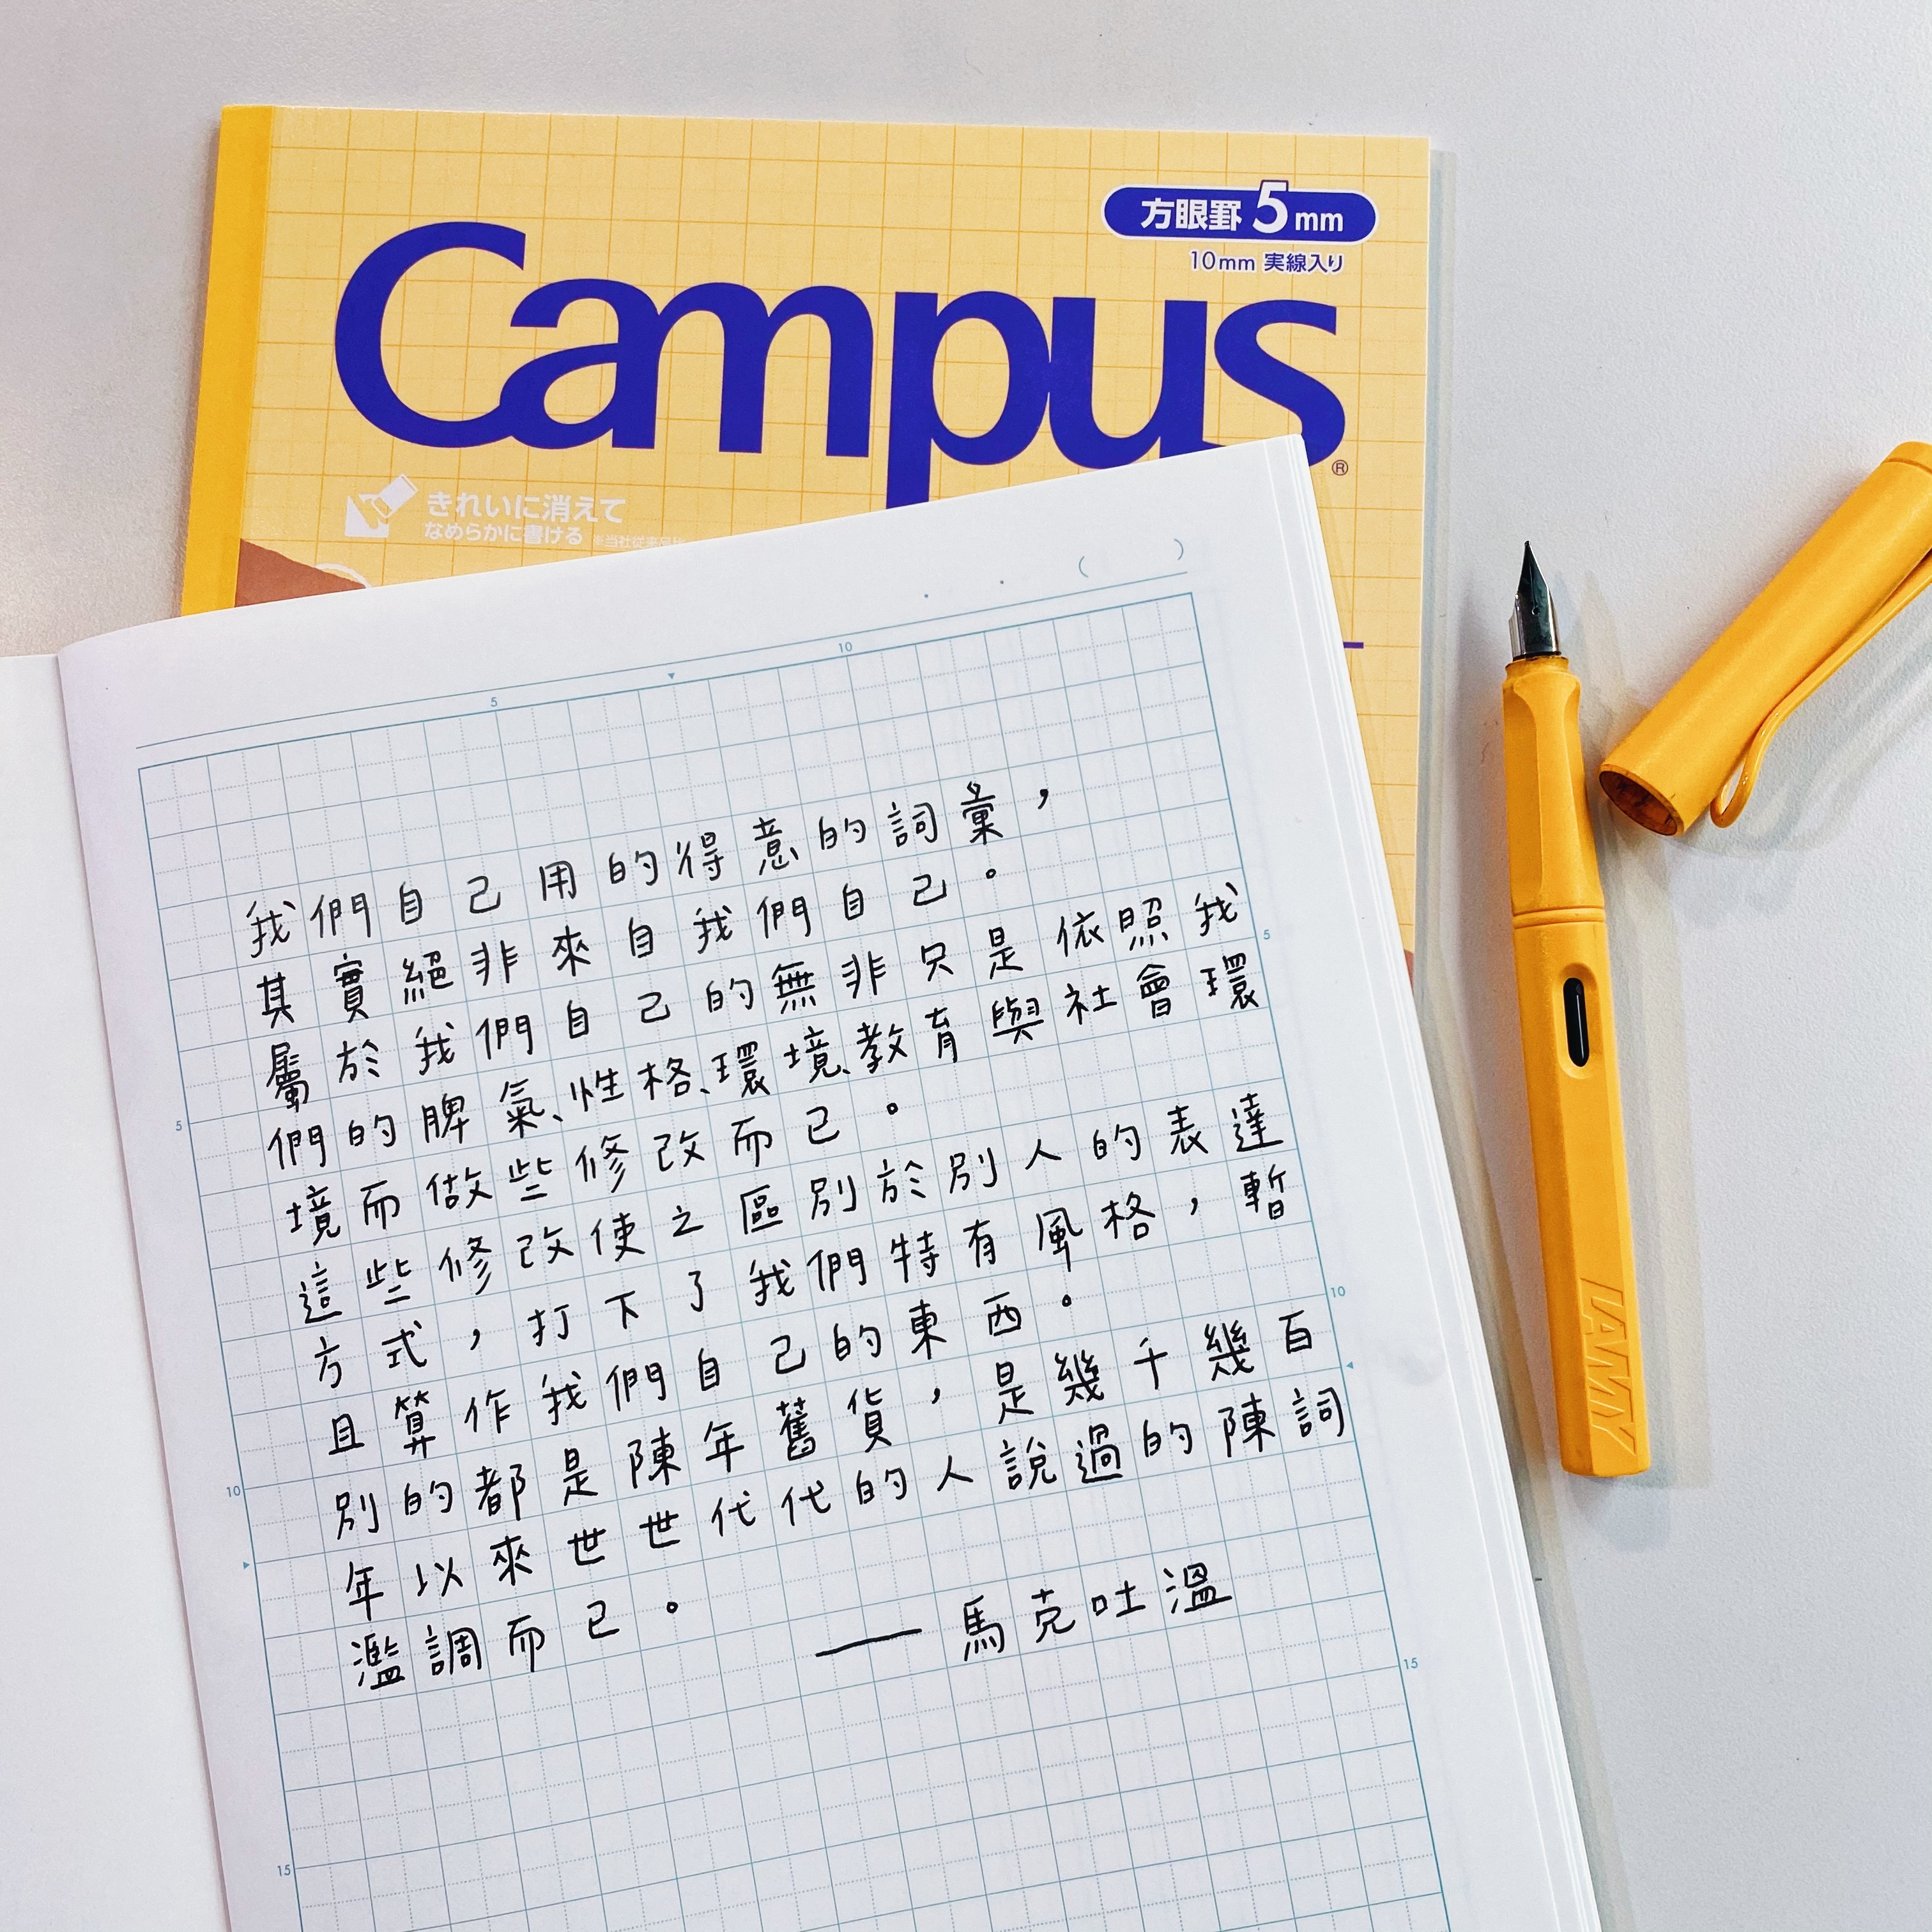 方眼罫 5mm
10mm 実線入り
Campus®
きれいに消えて
なめらかに書ける ※当社従来品比
( )
5
10
我們自己用的得意的詞彙,
其實絕非來自我們自己。
屬於我們自己的無非只是依照我
們的脾氣、性格、環境、教育與社會環
境而做些修改而已。
這些修改使之區別於別人的表達
方式,打下了我們特有風格,暫
且算作我們自己的東西。
別的都是陳年舊貨,是幾千幾百
年以來世世代代的人說過的陳詞
濫調而已。
——馬克吐溫
5
10
15
5
10
15
LAMY